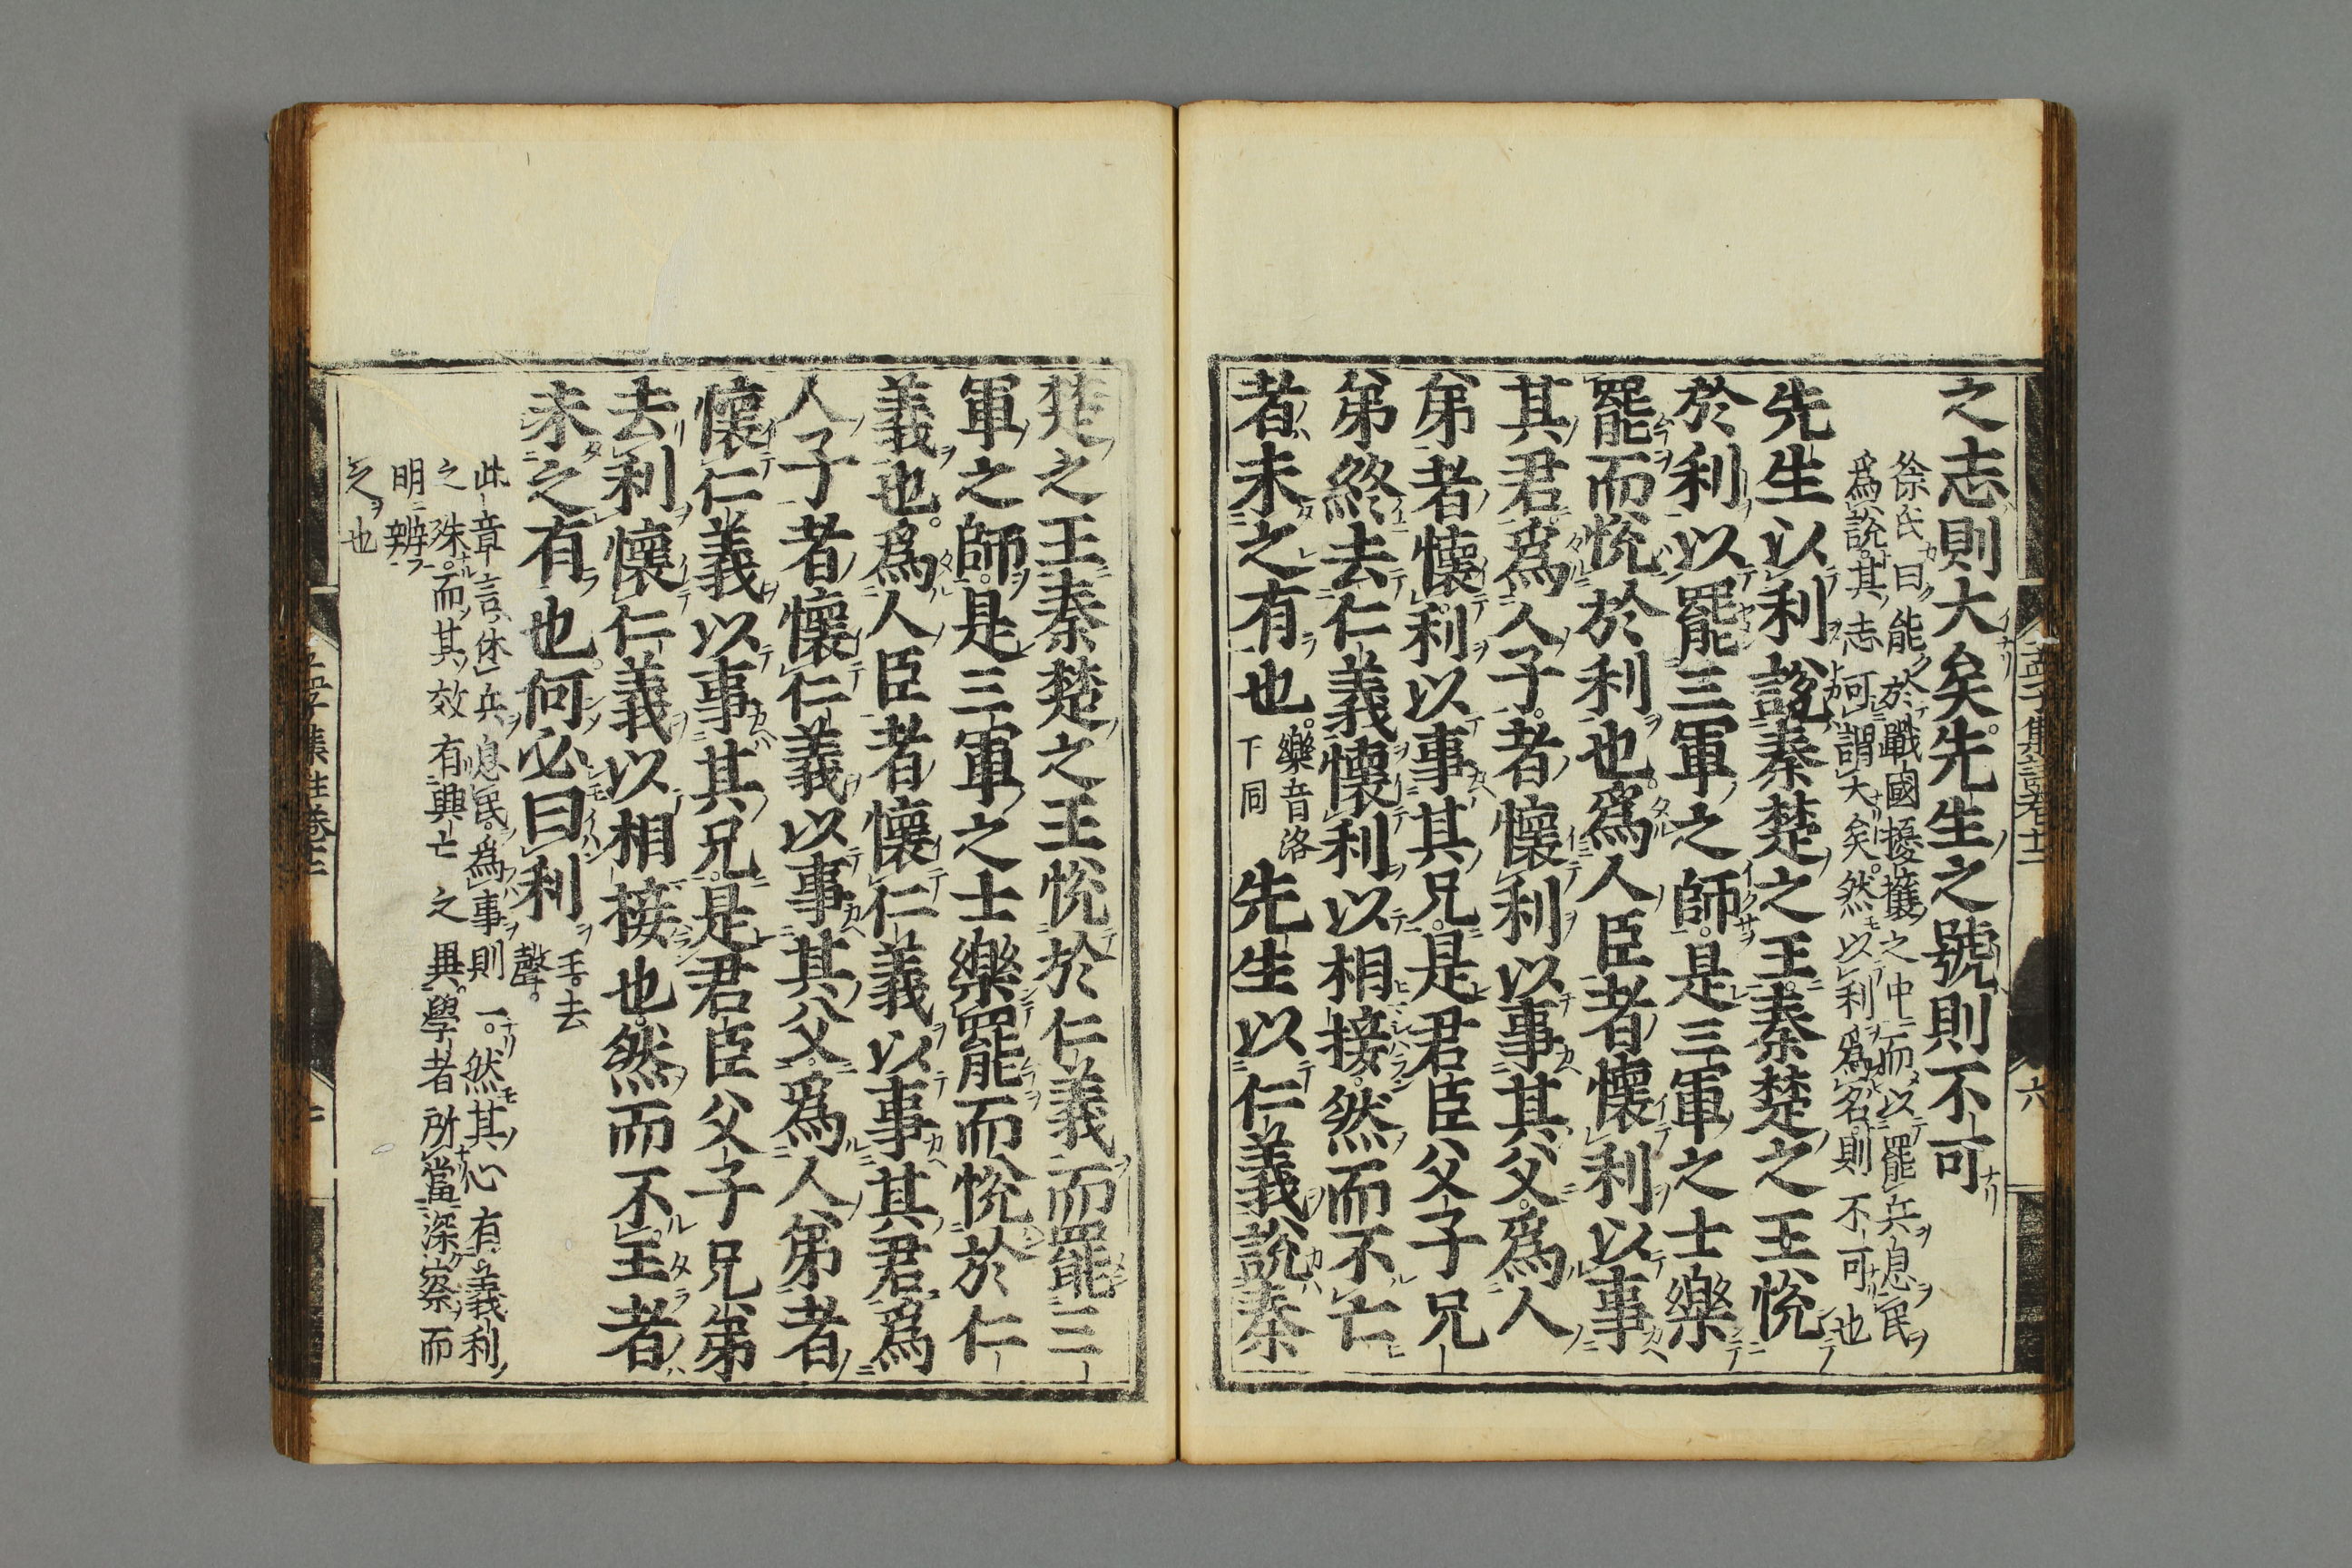 之志則大矣。先生之號則不可
徐氏曰能於戰國擾攘之中而以罷兵息民
爲說。其志可謂大矣。然以利爲名。則不可也
先生以利說秦楚之王。秦楚之王悅
於利以罷三軍之師。是三軍之士樂
罷而悅於利也。爲人臣者懷利以事
其君。爲人子者懷利以事其父。爲人
弟者懷利以事其兄。是君臣父子兄
弟終去仁義。懷利以相接。然而不亡
者未之有也。
樂音洛
下同
先生以仁義說秦
楚之王。秦楚之王悅於仁義。而罷三
軍之師。是三軍之士樂罷而悅於仁
義也。爲人臣者懷仁義以事其君。爲
人子者懷仁義以事其父。爲人弟者
懷仁義以事其兄。是君臣父子兄弟
去利懷仁義以相接也。然而不王者
未之有也。何必曰利
王。去
聲。
此章言休兵息民。爲事則一。然其心有義利
之殊。而其效有興亡之異。學者所當深察而
明辨
之也
孟子集註卷十二
六